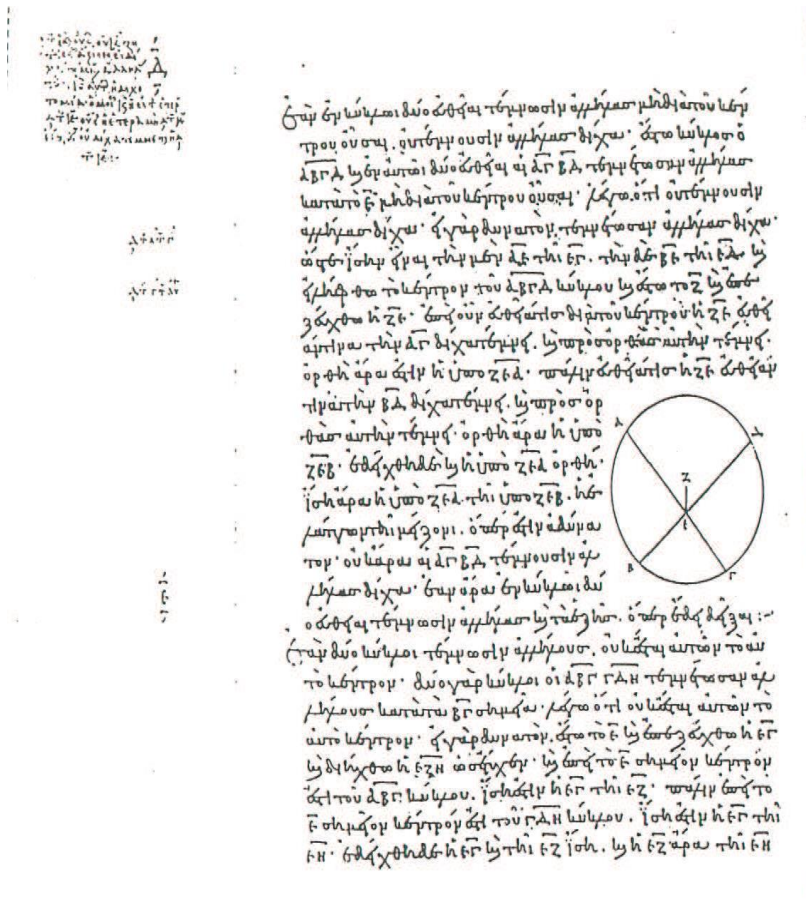 Δ
Ἐὰν ἐν κύκλωι δύο εὐθεῖαι τέμνωσιν ἀλλήλας μὴ διὰ τοῦ κέν
τρου οὖσαι, οὐ τέμνουσιν ἀλλήλας δίχα· ἔστω κύκλος ὁ
ΑΒΓΔ καὶ ἐν αὐτῶι δύο εὐθεῖαι αἱ ΑΓ ΒΔ τεμνέτωσαν ἀλλήλας
κατὰ τὸ Ε μὴ διὰ τοῦ κέντρου οὖσαι· λέγω ὅτι οὐ τέμνουσιν
ἀλλήλας δίχα· εἰ γὰρ δυνατὸν, τεμνέτωσαν ἀλλήλας δίχα·
ὥστε ἴσην εἶναι τὴν μὲν ΑΕ τῆι ΕΓ, τὴν δὲ ΒΕ τῆι ΕΔ, καὶ
εἰλήφθω τὸ κέντρον τοῦ ΑΒΓΔ κύκλου καὶ ἔστω τὸ Ζ καὶ ἐπε
ζεύχθω ἡ ΖΕ· ἐπεὶ οὖν εὐθεῖά τις διὰ τοῦ κέντρου ἡ ΖΕ εὐθεῖ
άν τινα τὴν ΑΓ δίχα τέμνει, καὶ πρὸς ὀρθὰς αὐτὴν τέμνει·
ὀρθὴ ἄρα ἐστὶν ἡ ὑπὸ ΖΕΑ· πάλιν εὐθεῖά τις ἡ ΖΕ εὐθεῖάν
τινα τὴν ΒΔ δίχα τέμνει, καὶ πρὸς ὀρ
θὰς αὐτὴν τέμνει· ὀρθὴ ἄρα ἡ ὑπὸ
ΖΕΒ· ἐδείχθη δὲ καὶ ἡ ὑπὸ ΖΕΑ ὀρθή·
ἴση ἄρα ἡ ὑπὸ ΖΕΑ τῆι ὑπὸ ΖΕΒ, ἡ ἐ
λάττων τῆι μείζονι, ὅπερ ἐστὶν ἀδύνα
τον· οὐκ ἄρα αἱ ΑΓ ΒΔ τέμνουσιν ἀλ
λήλας δίχα· ἐὰν ἄρα ἐν κύκλωι δύ
ο εὐθεῖαι τέμνωσιν ἀλλήλας καὶ τὰ ἑξῆς, ὅπερ ἔδει δεῖξαι:~
Α Δ
Ζ
Ε
Β Γ
Ε
Ἐὰν δύο κύκλοι τέμνωσιν ἀλλήλους, οὐκ ἔσται αὐτῶν τὸ αὐ
τὸ κέντρον· δύο γὰρ κύκλοι οἱ ΑΒΓ ΓΔΗ τεμνέτωσαν ἀλ
λήλους κατὰ τὰ ΒΓ σημεῖα· λέγω ὅτι οὐκ ἔσται αὐτῶν τὸ
αὐτὸ κέντρον· εἰ γὰρ δυνατὸν, ἔστω τὸ Ε καὶ ἐπεζεύχθω ἡ ΕΓ
καὶ διήχθω ἡ ΕΖΗ ὡς ἔτυχεν· καὶ ἐπεὶ τὸ Ε σημεῖον κέντρον
ἐστὶ τοῦ ΑΒΓ κύκλου, ἴση ἐστὶν ἡ ΕΓ τῆι ΕΖ· πάλιν ἐπεὶ τὸ
Ε σημεῖον κέντρον ἐστὶ τοῦ ΓΔΗ κύκλου, ἴση ἐστὶν ἡ ΕΓ τῆι
ΕΗ· ἐδείχθη δὲ ἡ ΕΓ καὶ τῆι ΕΖ ἴση, καὶ ἡ ΕΖ ἄρα τῆι ΕΗ